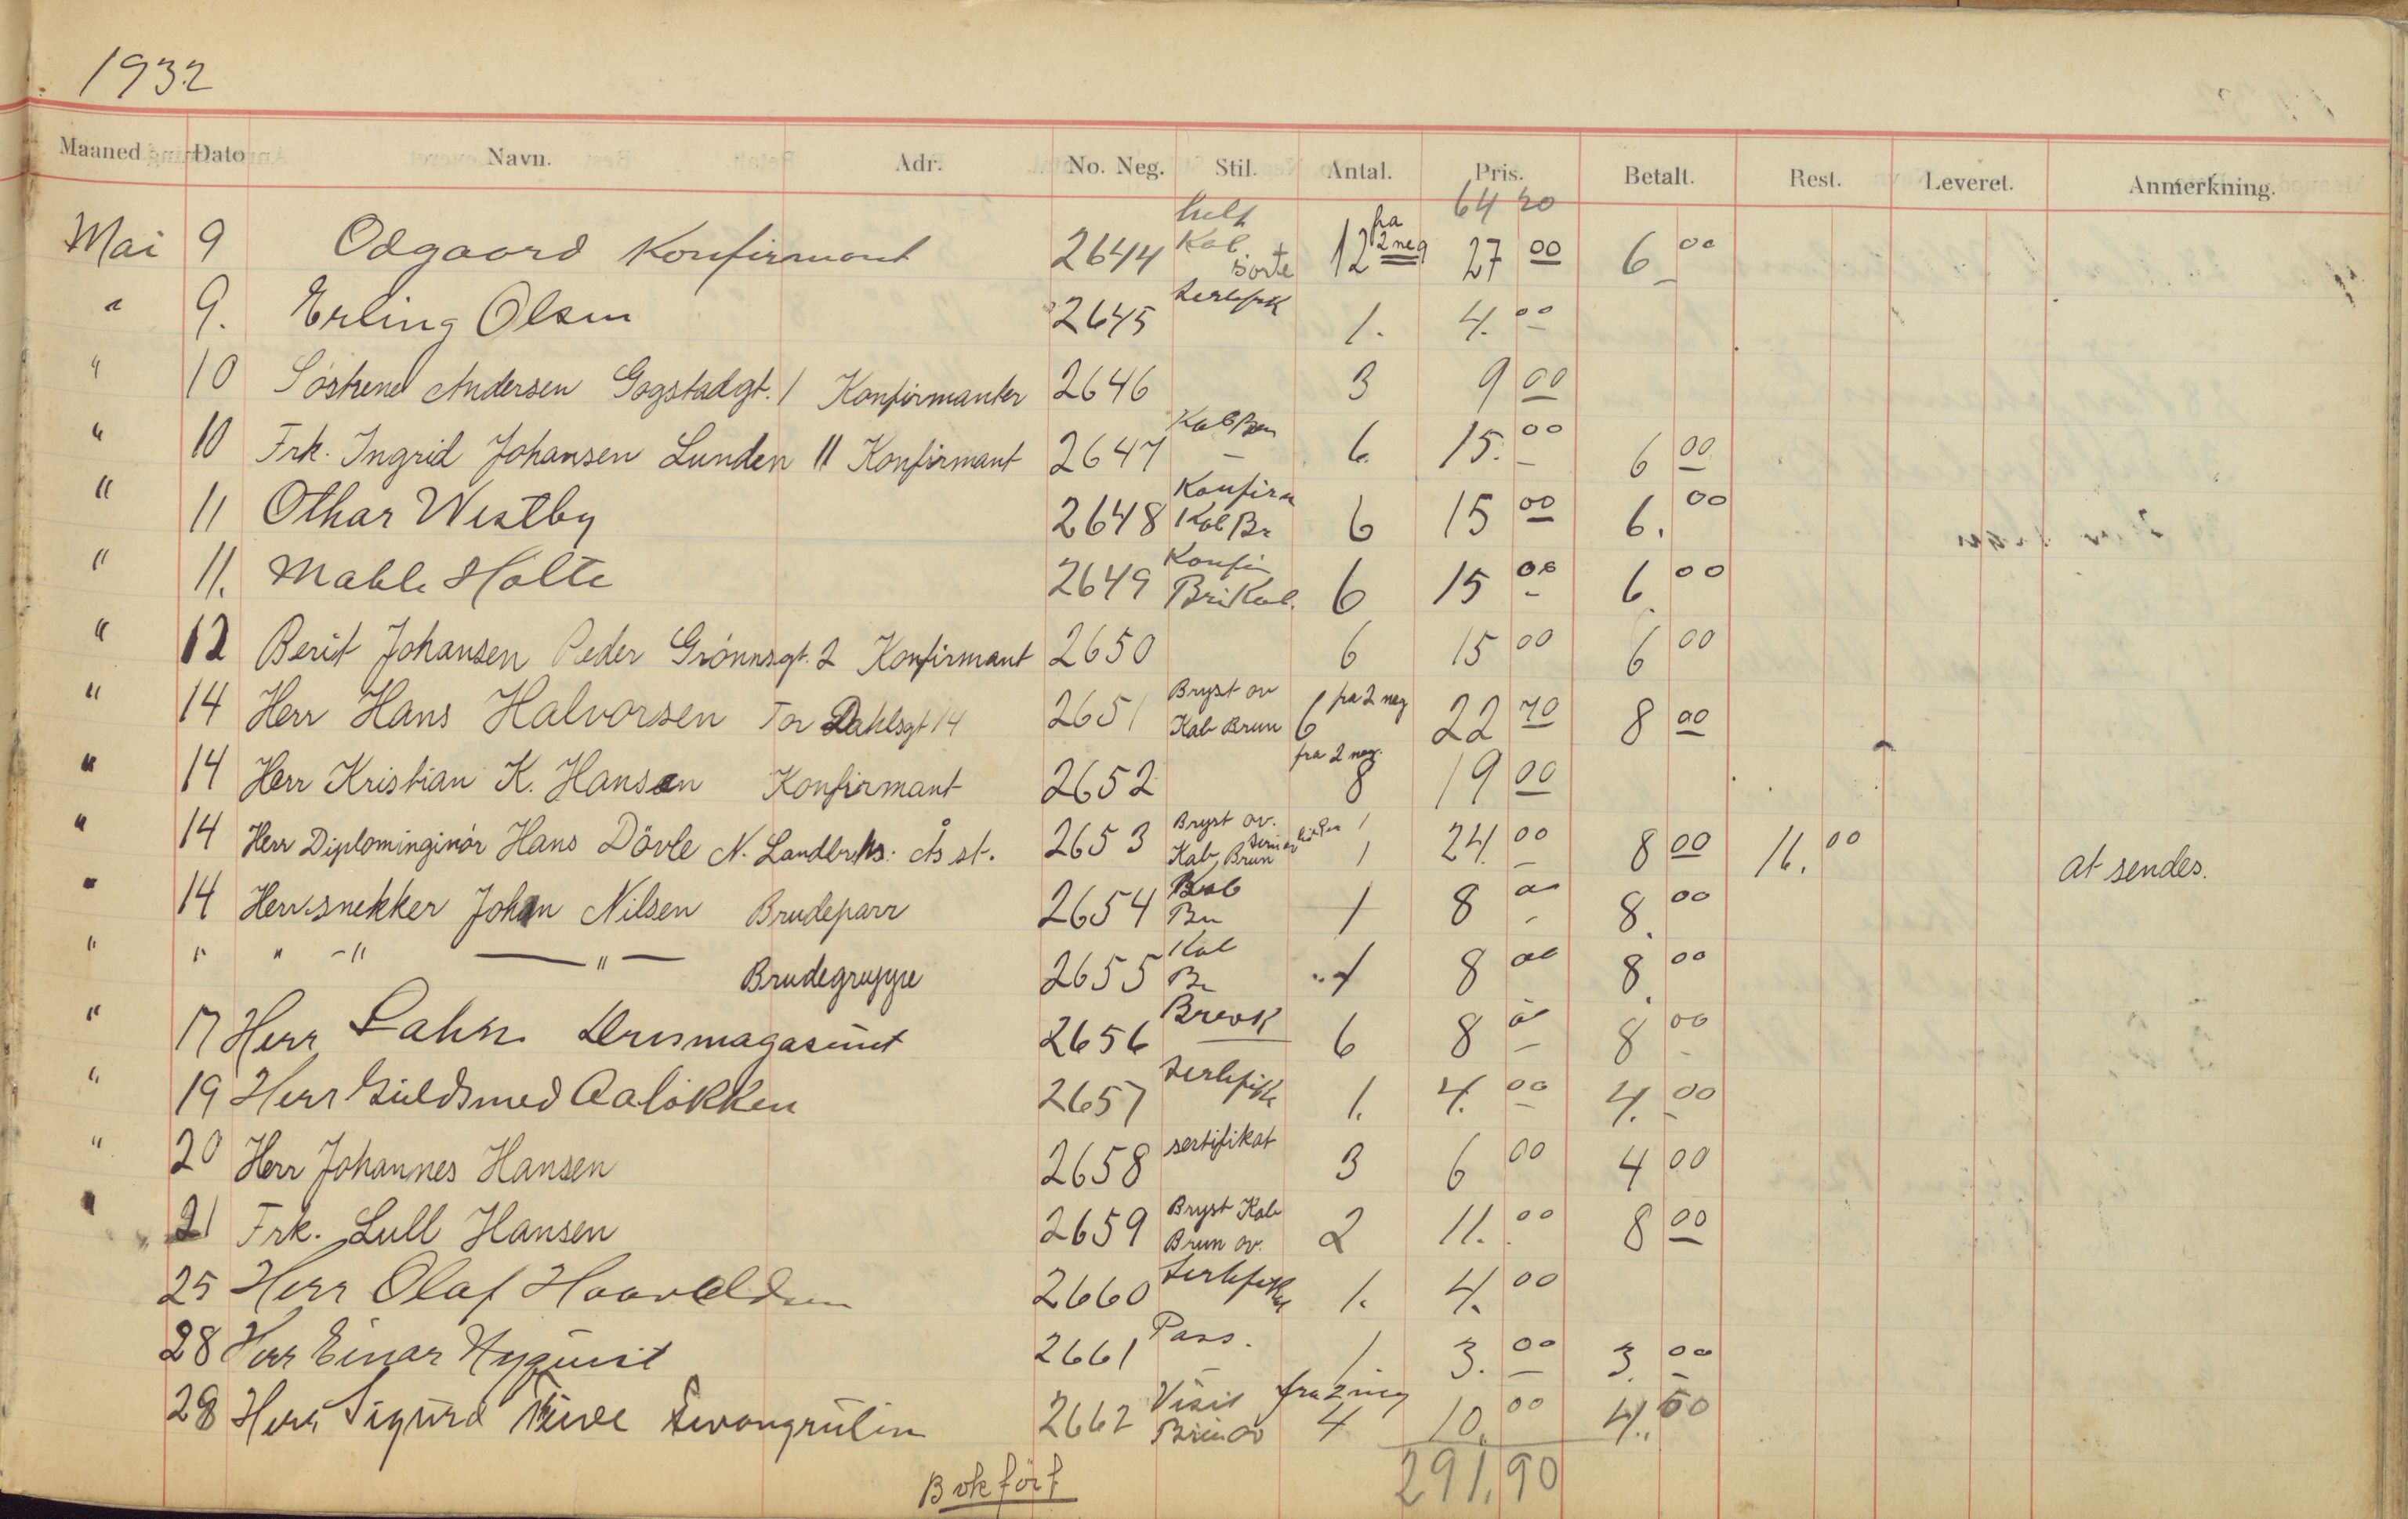 1932
Maaned Dato Navn. Adr. No. Neg. Stil. Antal. Pris. Betalt. Rest. Leveret. Anmerkning.
64 20
Mai 9 Odgaard Konfirmant 2644 helf Kab sorte 12 fra 2 neg 27 00 6 00
" 9. Erling Olsen 2645 Sertifik 1. 4. 00
" 10 Søstrene Andersen Gogstadgt. 1 Konfirmanter 2646 3 9 00
" 10 Frk. Ingrid Johansen Lunden 11 Konfirmant 2647 Kab Brun 6 15. 00 6 00
" 11 Othar Westby 2648 Konfirm Kab Br 6 15 00 6. 00
" 11. Mable Holte 2649 Konfir Br Kab. 6 15 00 6 00
" 12 Berit Johansen Peder Grønnsgt. 2 Konfirmant 2650 6 15 00 6 00
" 14 Herr Hans Halvorsen Tor Dahlsgt 14 2651 Bryst ov Kab Brun 6 fra 2 neg 22 70 8 00
" 14 Herr Kristian K. Hansen Konfirmant 2652 fra 2 neg. 8 19 00
" 14 Herr Diplominginiør Hans Dövle N. Landbr.hs. Ås st. 2653 Bryst ov. Kab Brun 1 1 24. 00 8 00 16. 00 at sendes.
" 14 Herr snekker Johan Nilsen Brudeparr 2654 Kab Bru 1 8 00 8. 00
" " " -" — " — Brudegruppe 2655 Kab Br 1 8 00 8. 00
" 17 Herr Lahn Drismagasinet 2656 Brevk 6 8 00 8 00
" 19 Herr Guldsmed Aaløkken 2657 Sertifik 1. 4. 00 4. 00
" 20 Herr Johannes Hansen 2658 sertifikat 3 6 00 4 00
" 21 Frk. Lull Hansen 2659 Bryst Kab Brun ov. 2 11. 00 8 00
25 Herr Olaf Haavaldsen 2660 Sertifikat 1. 4. 00
28 Herr Einar Nyquist 2661 Pass. 1 3. 00 3. 00
28 Herr Sigurd 2662 Visit Brun ov fra 2 neg 4 10. 00 4. 00
Bokført 291.90